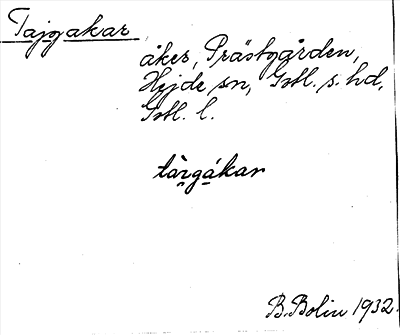 Tajgakar,
åker, Prästgården,
Hejde sn, Gotl. s. hd,
Gotl. l.
ta̱i̱rgákar
B. Bolin 1932.